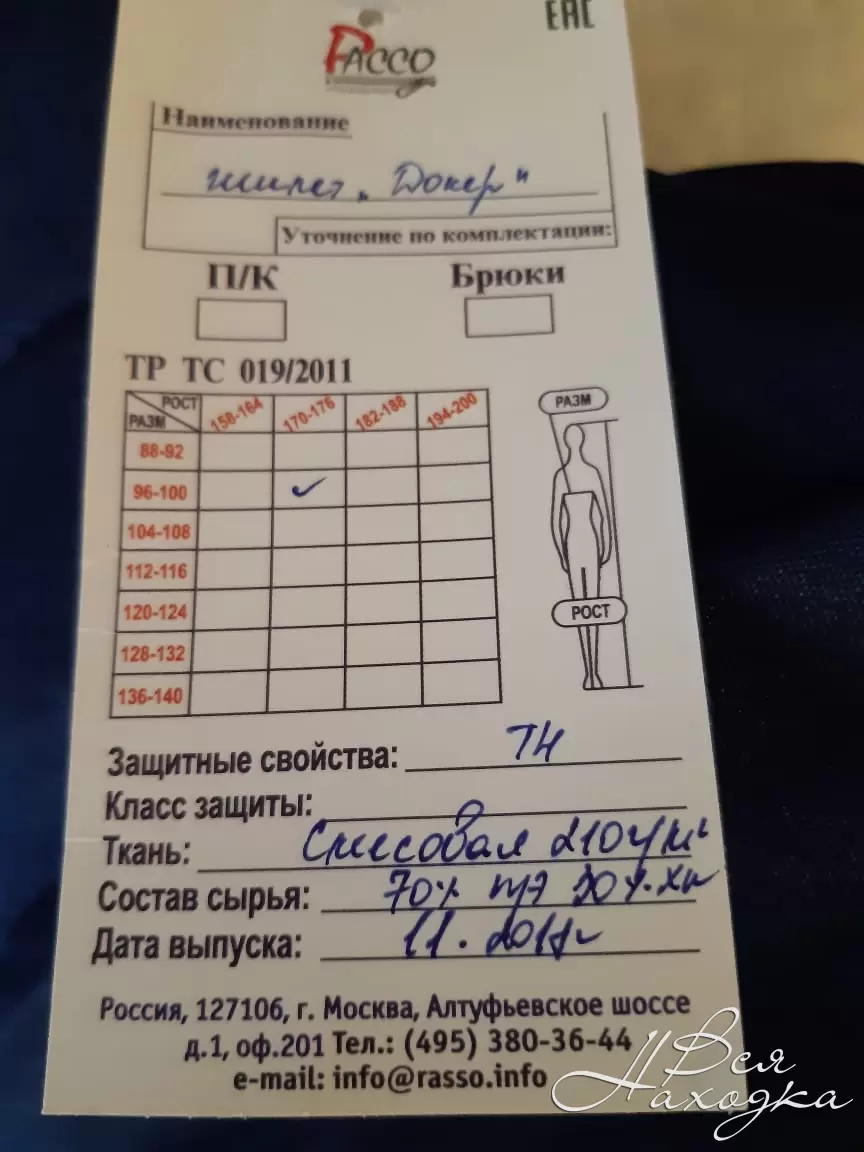 EAC
РАССО
Наименование
жилет „Докер"
Уточнение по комплектации:
П/К Брюки
ТР ТС 019/2011
РОСТ 158-164 170-176 182-188 194-200
РАЗМ
88-92
96-100 ✓
104-108
112-116
120-124
128-132
136-140
РАЗМ
РОСТ
Защитные свойства: ТН
Класс защиты:
Ткань: Смесовая 210г/м²
Состав сырья: 70% пэ 30% хл
Дата выпуска: 11.
Россия, 127106, г. Москва, Алтуфьевское шоссе
д.1, оф.201 Тел.: (495) 380-36-44
e-mail: info@rasso.info
Вся
Находка